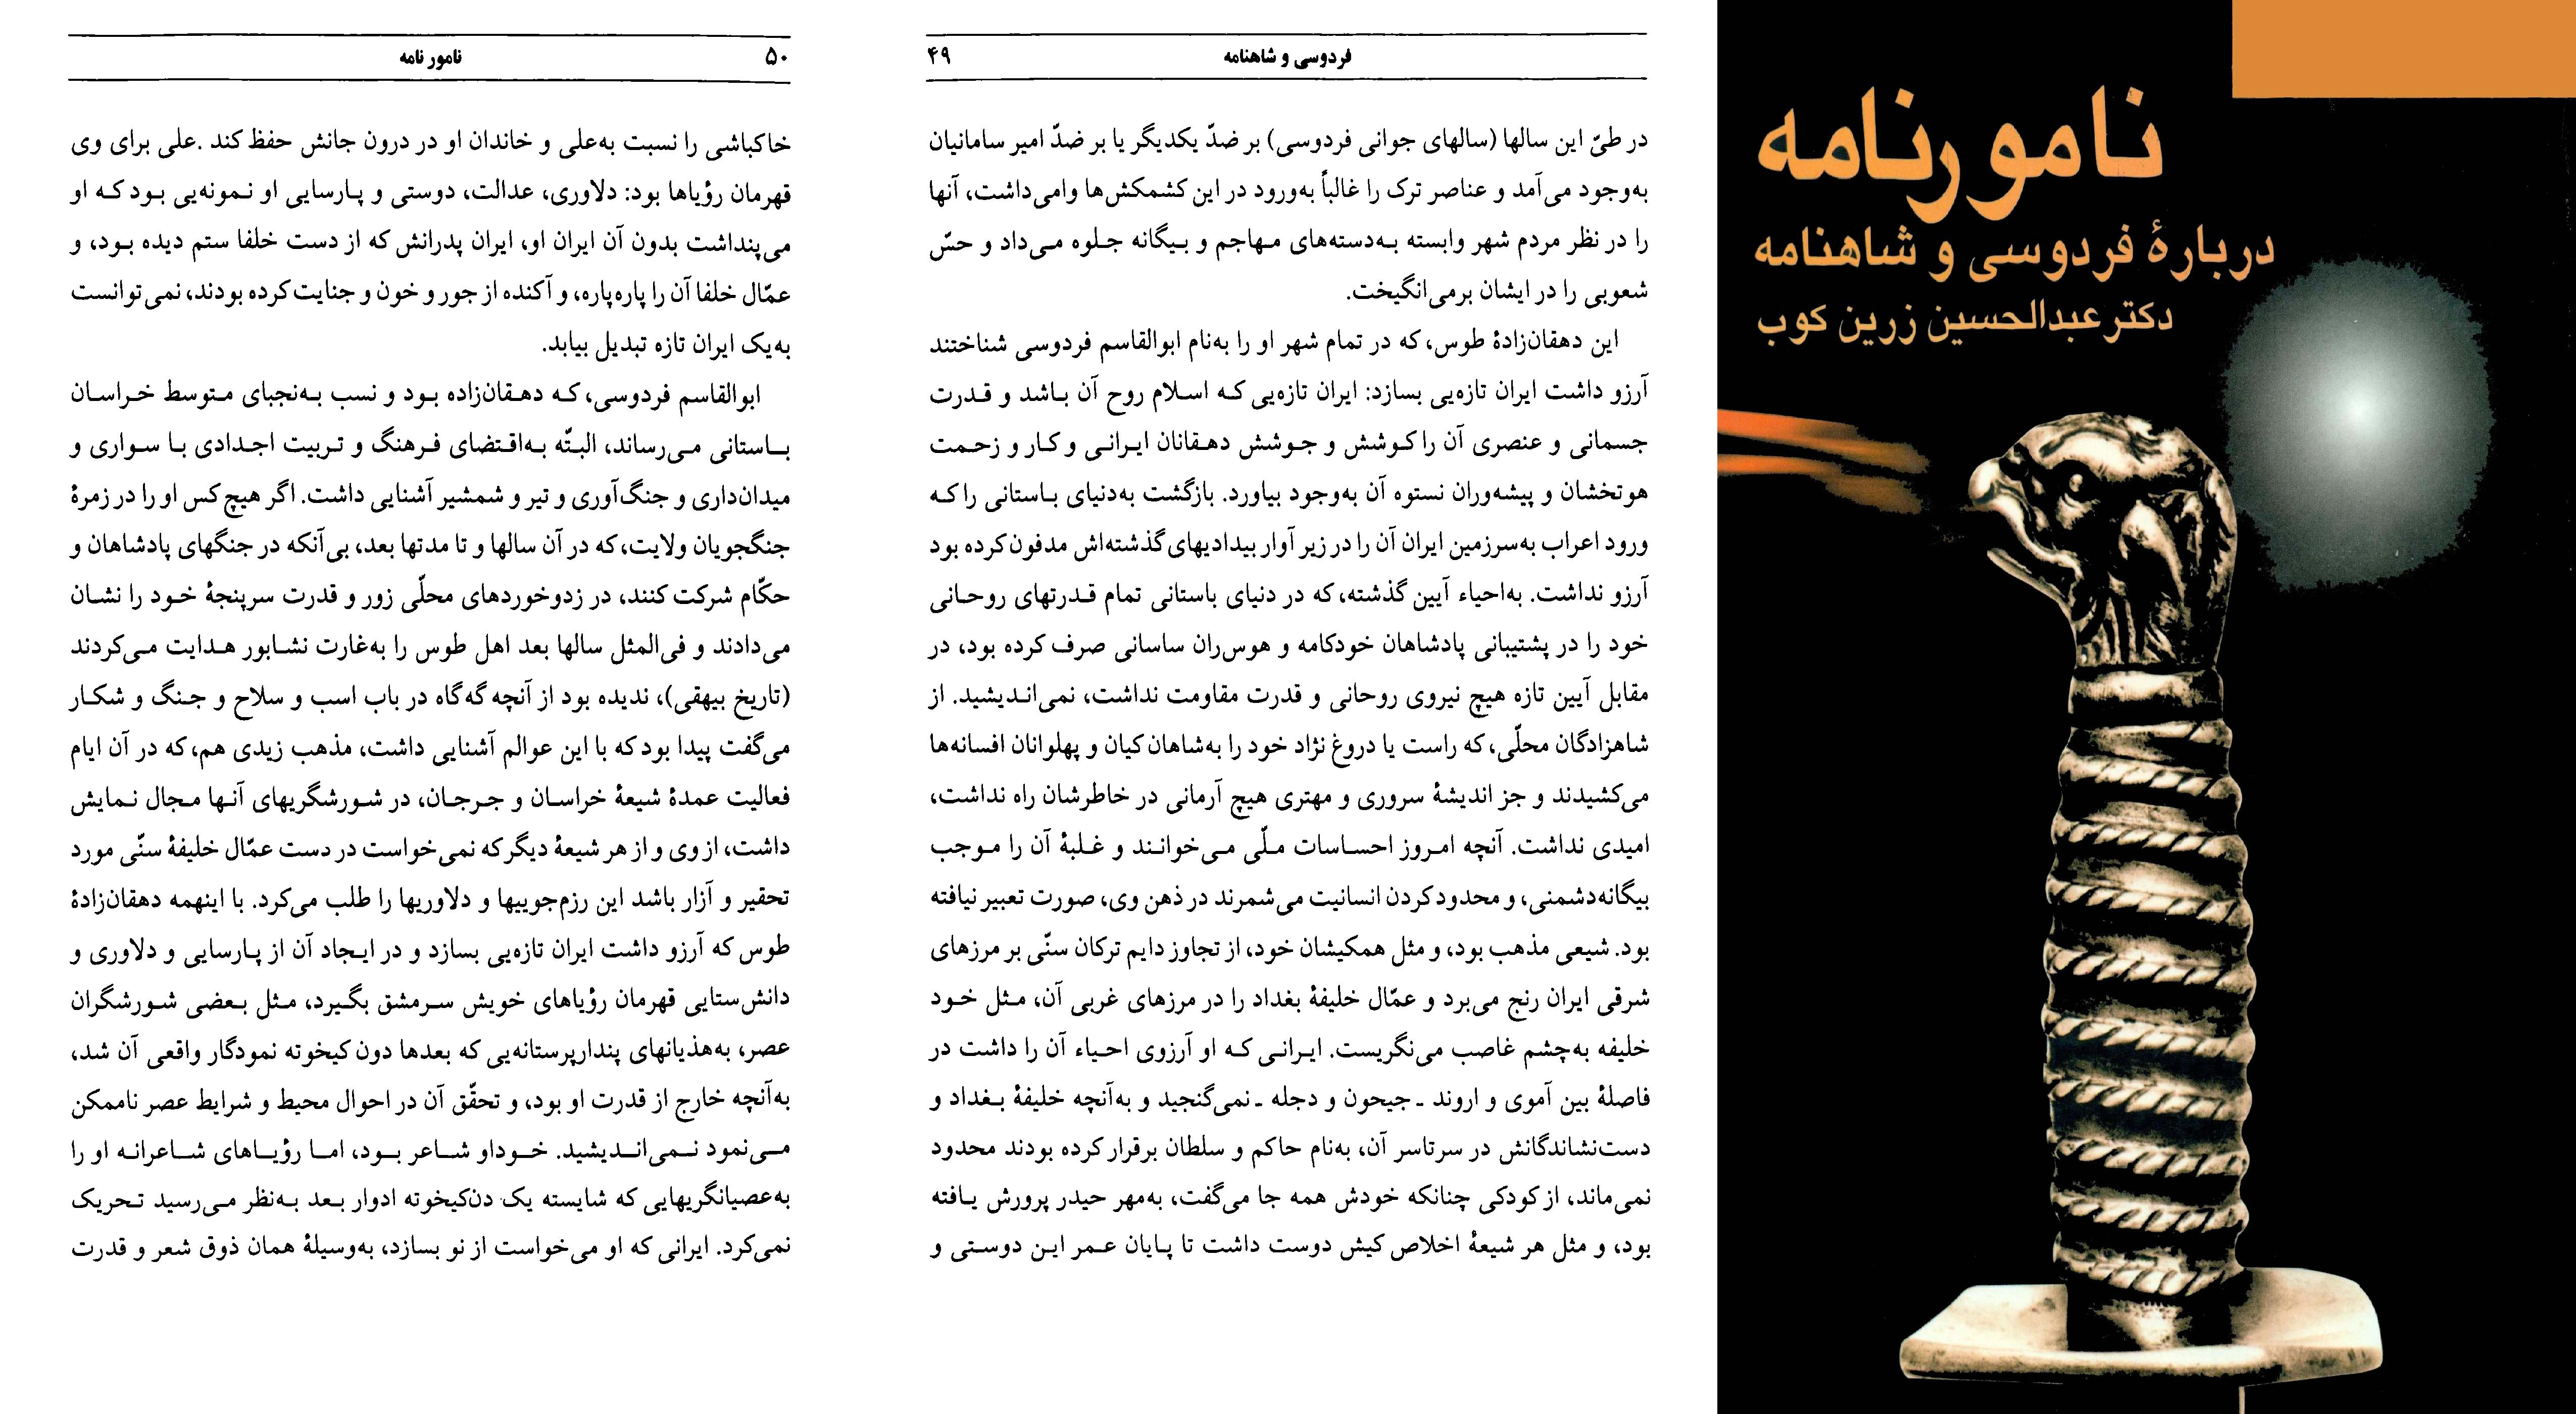 نامورنامه
دربارهٔ فردوسی و شاهنامه
دکتر عبدالحسین زرین کوب
فردوسی و شاهنامه
۴۹
در طیّ این سالها (سالهای جوانی فردوسی) بر ضدّ یکدیگر یا بر ضدّ امیر سامانیان
به‌وجود می‌آمد و عناصر ترک را غالباً به‌ورود در این کشمکش‌ها وامی‌داشت، آنها
را در نظر مردم شهر وابسته به‌دسته‌های مهاجم و بیگانه جلوه می‌داد و حسّ
شعوبی را در ایشان برمی‌انگیخت.
این دهقان‌زادهٔ طوس، که در تمام شهر او را به‌نام ابوالقاسم فردوسی شناختند
آرزو داشت ایران تازه‌یی بسازد: ایران تازه‌یی که اسلام روح آن باشد و قدرت
جسمانی و عنصری آن را کوشش و جوشش دهقانان ایرانی و کار و زحمت
هوتخشان و پیشه‌وران نستوه آن به‌وجود بیاورد. بازگشت به‌دنیای باستانی را که
ورود اعراب به‌سرزمین ایران آن را در زیر آوار بیدادیهای گذشته‌اش مدفون کرده بود
آرزو نداشت. به‌احیاء آیین گذشته، که در دنیای باستانی تمام قدرتهای روحانی
خود را در پشتیبانی پادشاهان خودکامه و هوس‌ران ساسانی صرف کرده بود، در
مقابل آیین تازه هیچ نیروی روحانی و قدرت مقاومت نداشت، نمی‌اندیشید. از
شاهزادگان محلّی، که راست یا دروغ نژاد خود را به‌شاهان کیان و پهلوانان افسانه‌ها
می‌کشیدند و جز اندیشهٔ سروری و مهتری هیچ آرمانی در خاطرشان راه نداشت،
امیدی نداشت. آنچه امروز احساسات ملّی می‌خوانند و غلبهٔ آن را موجب
بیگانه‌دشمنی، و محدود کردن انسانیت می‌شمرند در ذهن وی، صورت تعبیر نیافته
بود. شیعی مذهب بود، و مثل همکیشان خود، از تجاوز دایم ترکان سنّی بر مرزهای
شرقی ایران رنج می‌برد و عمّال خلیفهٔ بغداد را در مرزهای غربی آن، مثل خود
خلیفه به‌چشم غاصب می‌نگریست. ایرانی که او آرزوی احیاء آن را داشت در
فاصلهٔ بین آموی و اروند ـ جیحون و دجله ـ نمی‌گنجید و به‌آنچه خلیفهٔ بغداد و
دست‌نشاندگانش در سرتاسر آن، به‌نام حاکم و سلطان برقرار کرده بودند محدود
نمی‌ماند، از کودکی چنانکه خودش همه جا می‌گفت، به‌مهر حیدر پرورش یافته
بود، و مثل هر شیعهٔ اخلاص کیش دوست داشت تا پایان عمر این دوستی و
۵۰
نامور نامه
خاکباشی را نسبت به‌علی و خاندان او در درون جانش حفظ کند .علی برای وی
قهرمان رؤیاها بود: دلاوری، عدالت، دوستی و پارسایی او نمونه‌یی بود که او
می‌پنداشت بدون آن ایران او، ایران پدرانش که از دست خلفا ستم دیده بود، و
عمّال خلفا آن را پاره‌پاره، و آکنده از جور و خون و جنایت کرده بودند، نمی‌توانست
به‌یک ایران تازه تبدیل بیابد.
ابوالقاسم فردوسی، که دهقان‌زاده بود و نسب به‌نجبای متوسط خراسان
باستانی می‌رساند، البتّه به‌اقتضای فرهنگ و تربیت اجدادی با سواری و
میدان‌داری و جنگ‌آوری و تیر و شمشیر آشنایی داشت. اگر هیچ کس او را در زمرهٔ
جنگجویان ولایت، که در آن سالها و تا مدتها بعد، بی‌آنکه در جنگهای پادشاهان و
حکّام شرکت کنند، در زدوخوردهای محلّی زور و قدرت سرپنجهٔ خود را نشان
می‌دادند و فی‌المثل سالها بعد اهل طوس را به‌غارت نشابور هدایت می‌کردند
(تاریخ بیهقی)، ندیده بود از آنچه گه‌گاه در باب اسب و سلاح و جنگ و شکار
می‌گفت پیدا بود که با این عوالم آشنایی داشت، مذهب زیدی هم، که در آن ایام
فعالیت عمدهٔ شیعهٔ خراسان و جرجان، در شورشگریهای آنها مجال نمایش
داشت، از وی و از هر شیعهٔ دیگر که نمی‌خواست در دست عمّال خلیفهٔ سنّی مورد
تحقیر و آزار باشد این رزم‌جوییها و دلاوریها را طلب می‌کرد. با اینهمه دهقان‌زادهٔ
طوس که آرزو داشت ایران تازه‌یی بسازد و در ایجاد آن از پارسایی و دلاوری و
دانش‌ستایی قهرمان رؤیاهای خویش سرمشق بگیرد، مثل بعضی شورشگران
عصر، به‌هذیانهای پندارپرستانه‌یی که بعدها دون کیخوته نمودگار واقعی آن شد،
به‌آنچه خارج از قدرت او بود، و تحقّق آن در احوال محیط و شرایط عصر ناممکن
می‌نمود نمی‌اندیشید. خوداو شاعر بود، اما رؤیاهای شاعرانه او را
به‌عصیانگریهایی که شایسته یک دن‌کیخوته ادوار بعد به‌نظر می‌رسید تحریک
نمی‌کرد. ایرانی که او می‌خواست از نو بسازد، به‌وسیلهٔ همان ذوق شعر و قدرت